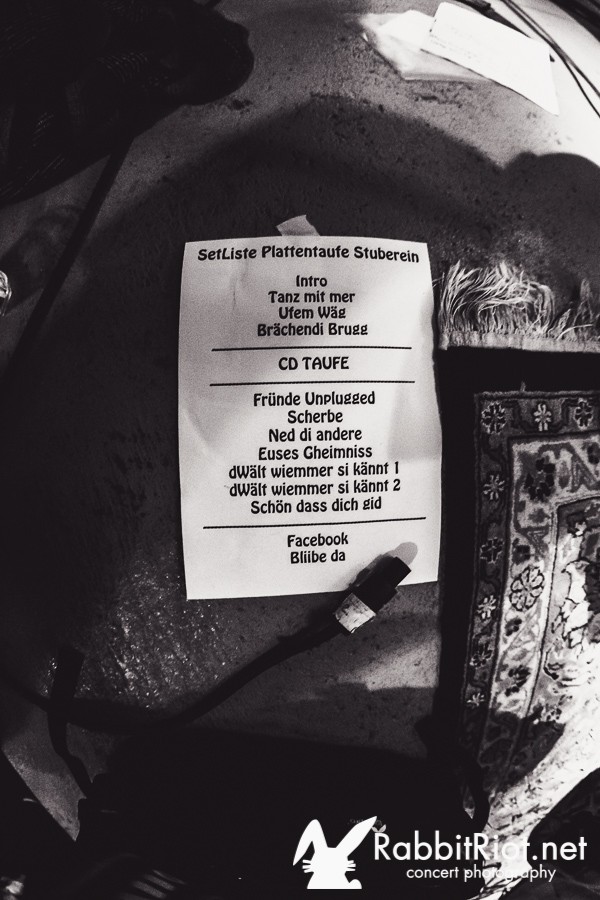 SetListe Plattentaufe Stuberein
Intro
Tanz mit mer
Ufem Wäg
Brächendi Brugg
CD TAUFE
Fründe Unplugged
Scherbe
Ned di andere
Euses Gheimniss
dWält wiemmer si kännt 1
dWält wiemmer si kännt 2
Schön dass dich gid
Facebook
Bliibe da
RabbitRiot.net
concert photography